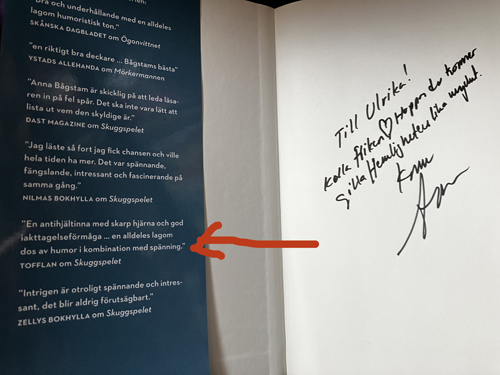 "Bra och underhållande med en alldeles
lagom humoristisk ton."
SKÅNSKA DAGBLADET om Ögonvittnet
"en riktigt bra deckare ... Bågstams bästa"
YSTADS ALLEHANDA om Mörkermannen
"Anna Bågstam är skicklig på att leda läsa-
ren in på fel spår. Det ska inte vara lätt att
lista ut vem den skyldige är."
DAST MAGAZINE om Skuggspelet
"Jag läste så fort jag fick chansen och ville
hela tiden ha mer. Det var spännande,
fängslande, intressant och fascinerande på
samma gång."
NILMAS BOKHYLLA om Skuggspelet
"En antihjältinna med skarp hjärna och god
iakttagelseförmåga ... en alldeles lagom
dos av humor i kombination med spänning."
TOFFLAN om Skuggspelet
"Intrigen är otroligt spännande och intres-
sant, det blir aldrig förutsägbart."
ZELLYS BOKHYLLA om Skuggspelet
Till Ulrika!
Kolla fliken ♡ Hoppas du kommer
gilla Hemligheten lika mycket.
Kram